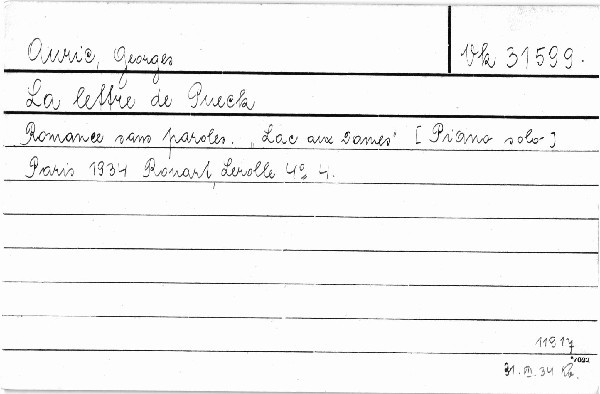 Auric, Georges
Vk 31599.
La lettre de Pueck
Romance sans paroles. „Lac aux Dames" [Piano solo]
Paris 1934 Rouart, Lerolle 4° 4.
11917
31. III. 34